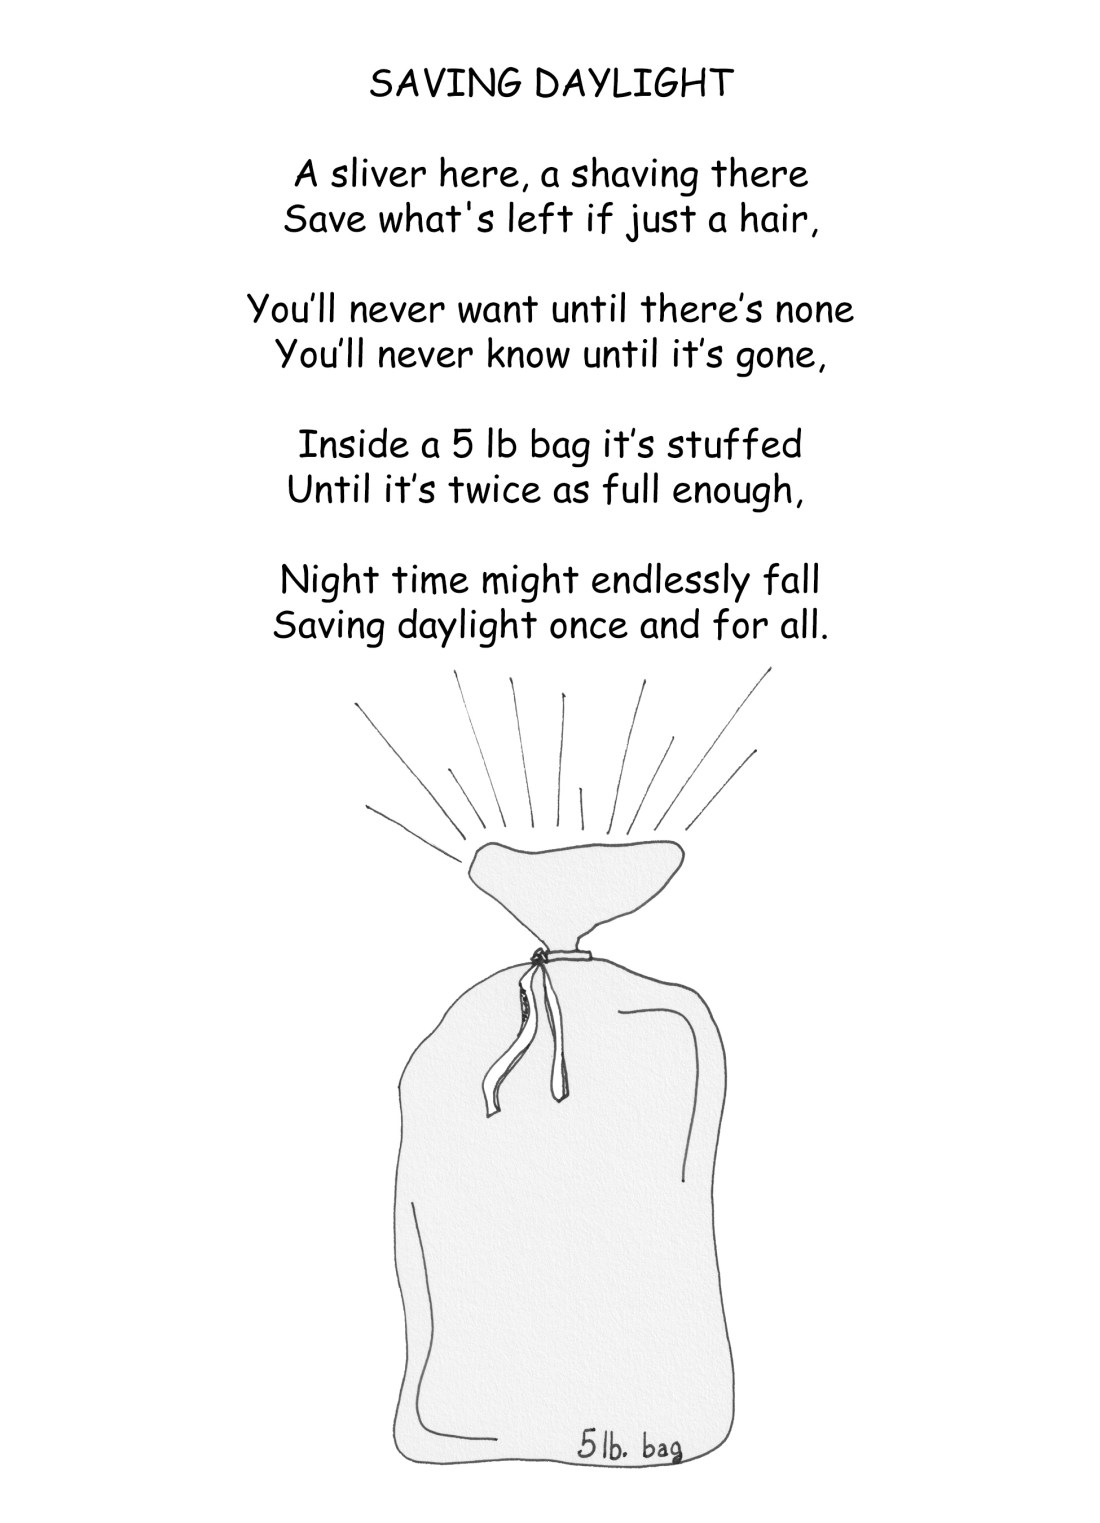 SAVING DAYLIGHT
A sliver here, a shaving there
Save what's left if just a hair,
You’ll never want until there’s none
You’ll never know until it’s gone,
Inside a 5 lb bag it’s stuffed
Until it’s twice as full enough,
Night time might endlessly fall
Saving daylight once and for all.
5 lb. bag